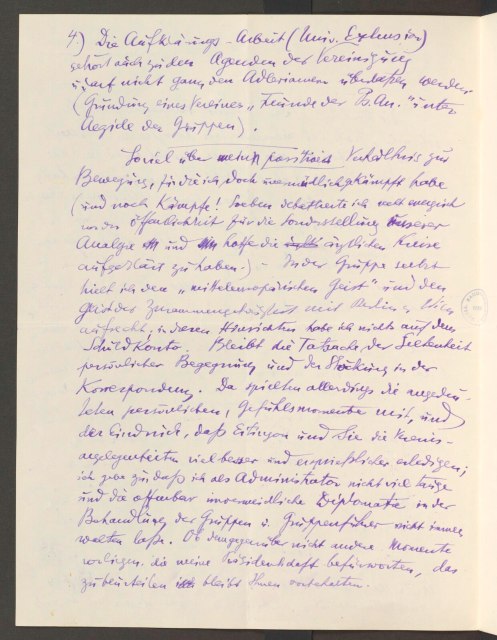 4) Die Aufklärungs-Arbeit (Univ. Extension)
gehört auch zu den Agenden der Vereinigung
u. darf nicht ganz den Adlerianern überlassen werden.
(Gründung eines Vereines „Freunde der Ps.An." unter
Aegide der Gruppen).
Soviel über mein Verhältnis zur
Bewegung, für die ich doch unermüdlich gekämpft habe
(und noch kämpfe! Soeben ich recht energisch
vor der Öffentlichkeit für die Sonderstellung unserer
Analyse und hoffe die ärztlichen Kreise
aufgeklärt zu haben.) – In der Gruppe selbst
hielt ich den „mitteleuropäischen Geist" und den
Geist der Zusammengehörigkeit mit Berlin u. Wien
aufrecht, in deren Hinsichten habe ich nichts auf dem
Schuldkonto. Bleibt die Tatsache der Seltenheit
persönlicher Begegnung und der Stockung in der
Korrespondenz. Da spielten allerdings die angedeu-
teten persönlichen, Gefühlsmomente mit, und
der Eindruck, daß Eitingon und Sie die Vereins-
angelegenheiten viel besser und ersprießlicher erledigen;
ich gebe zu daß ich als Administrator nicht viel tauge
und die offenbar unvermeidliche Diplomatie in der
Behandlung der Gruppen u. Gruppenführer nicht immer
walten lasse. Ob demgegenüber nicht andere Momente
vorliegen die meine Präsidentschaft befürworten, das
zu beurteilen bleibt Ihnen vorbehalten.